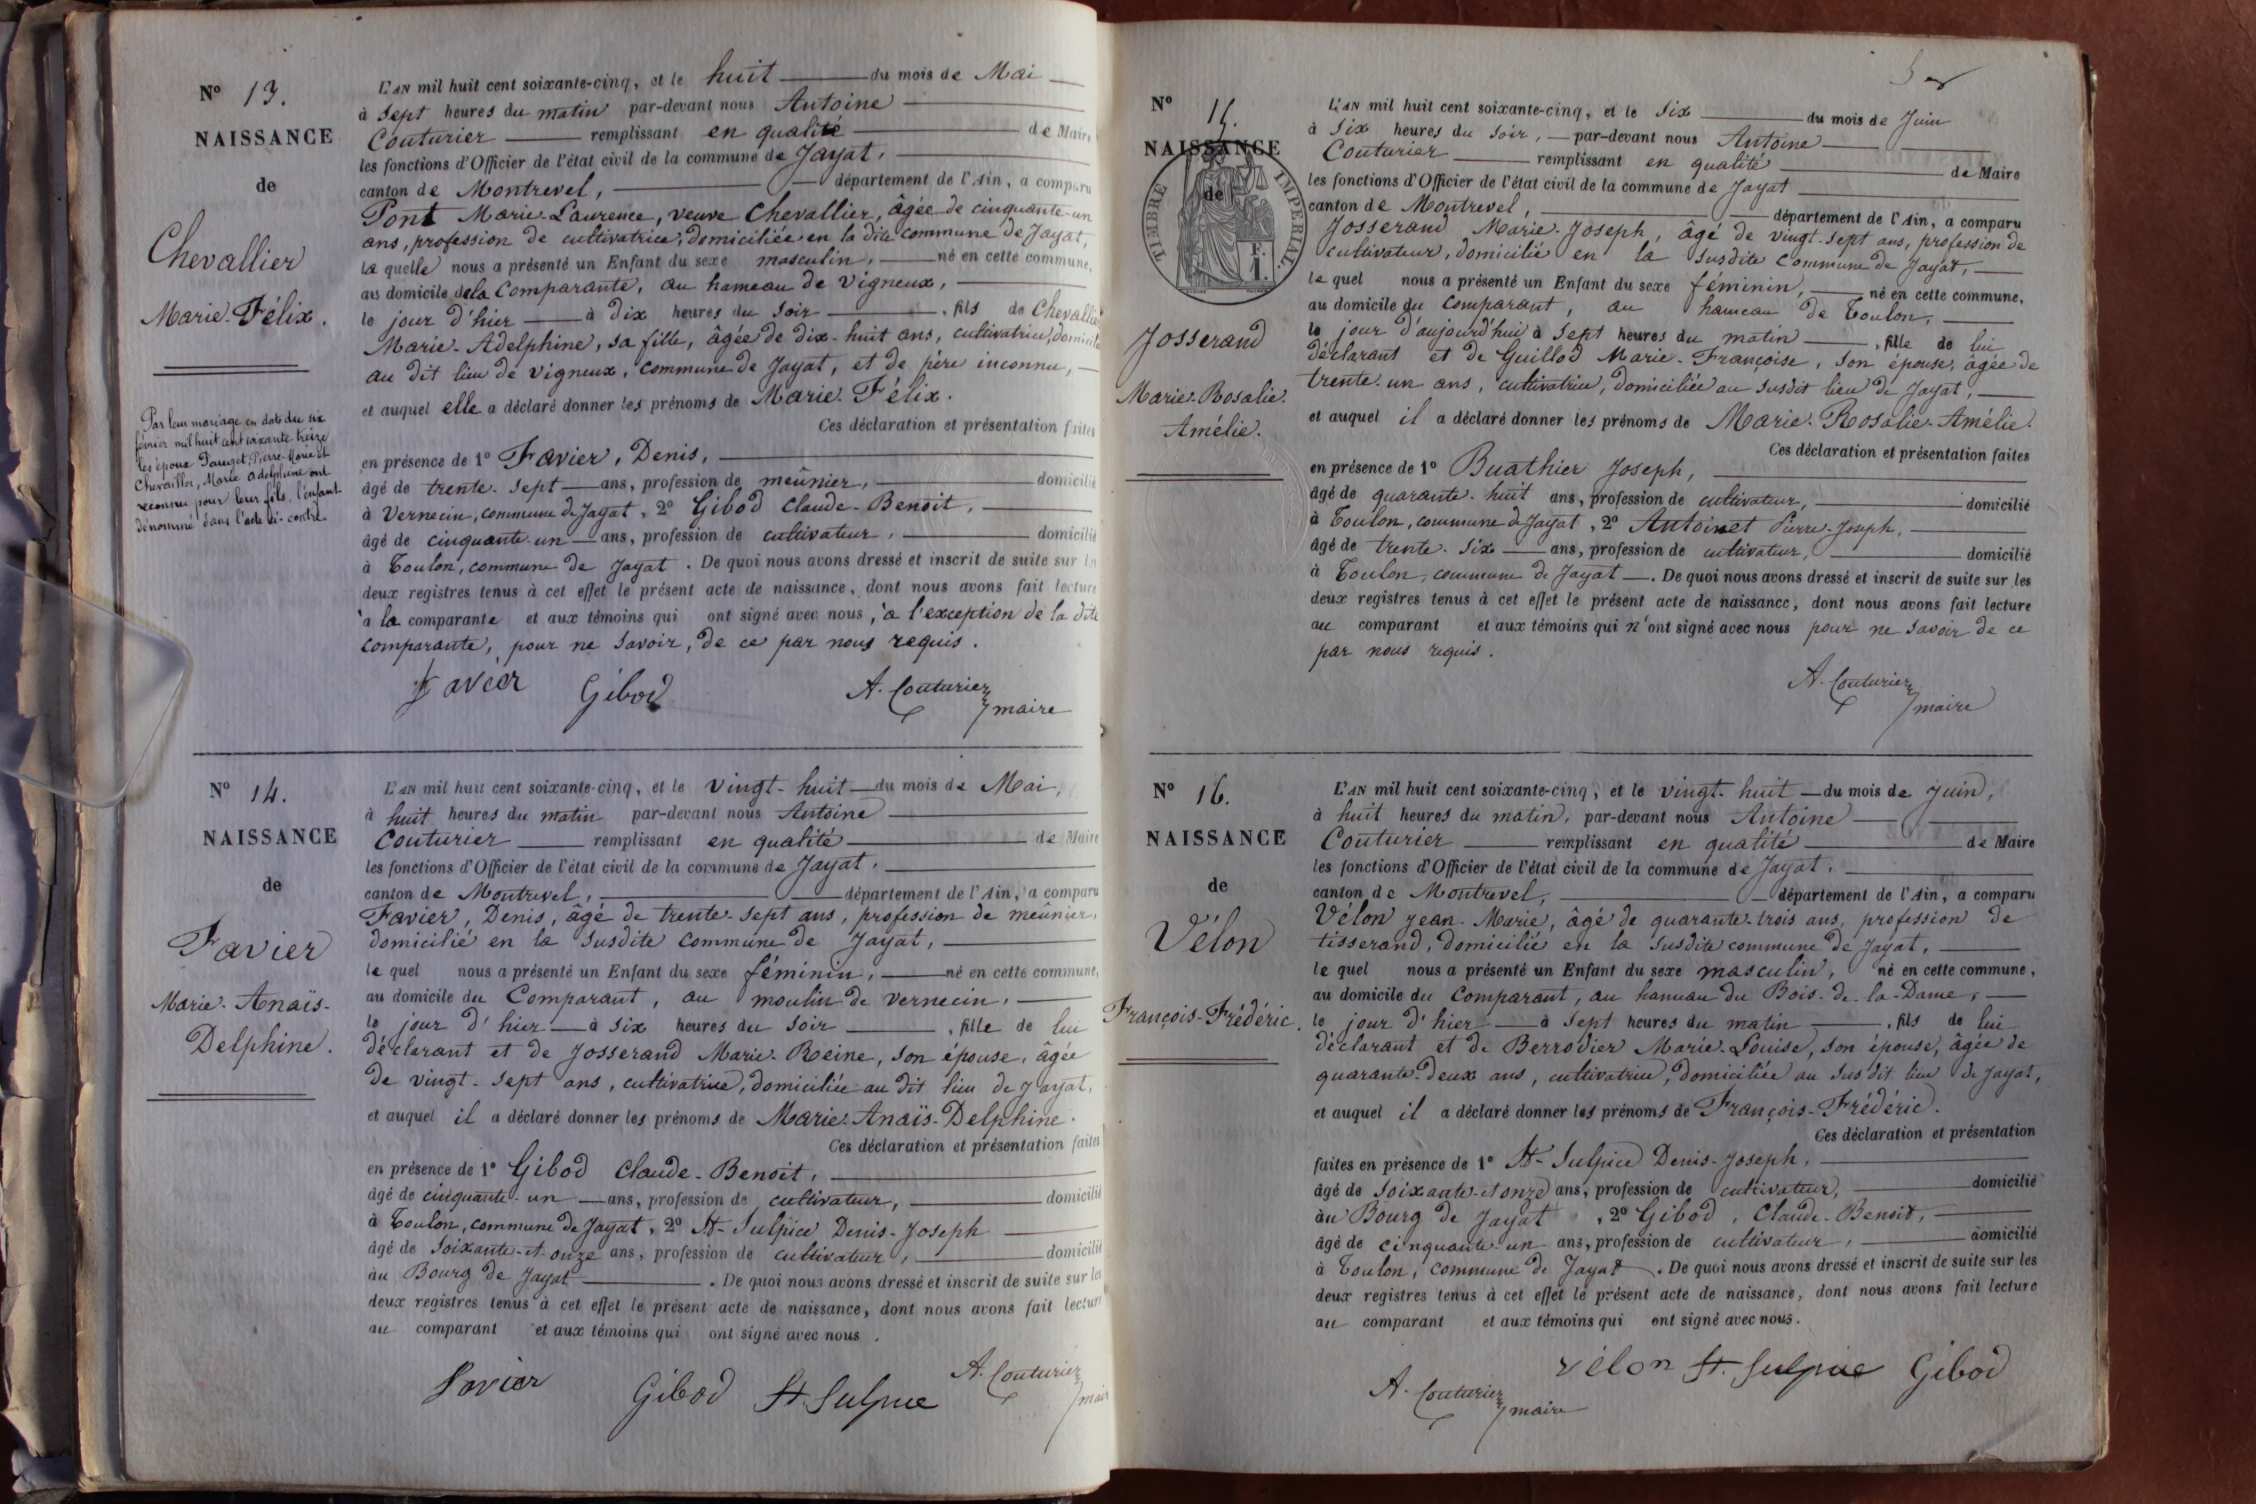 N° 13.
NAISSANCE
de
Chevallier
Marie-Félix.
Par leur mariage en date du six
février mil huit cent soixante treize
les époux Pauget, Pierre-Marie et
Chevallier, Marie Adelphine ont
reconnu pour leur fils, l'enfant
dénommé dans l'acte ci-contre.
L'AN mil huit cent soixante-cinq, et le huit du mois de Mai
à sept heures du matin par-devant nous Antoine
Couturier remplissant en qualité de Maire
les fonctions d'Officier de l'état civil de la commune de Jayat,
canton de Montrevel, département de l'Ain, a comparu
Pont Marie-Laurence, veuve Chevallier, âgée de cinquante-un
ans, profession de cultivatrice, domiciliée en la dite commune de Jayat,
la quelle nous a présenté un Enfant du sexe masculin, né en cette commune,
au domicile de la Comparante, au hameau de Vigneux,
le jour d'hier à dix heures du soir, fils de Chevallier
Marie-Adelphine, sa fille, âgée de dix-huit ans, cultivatrice, domiciliée
au dit lieu de Vigneux, commune de Jayat, et de père inconnu,
et auquel elle a déclaré donner les prénoms de Marie-Félix.
Ces déclaration et présentation faites
en présence de 1° Favier, Denis,
âgé de trente-sept ans, profession de meûnier, domicilié
à Vernecin, commune de Jayat, 2° Gibod Claude-Benoit,
âgé de cinquante-un ans, profession de cultivateur, domicilié
à Toulon, commune de Jayat. De quoi nous avons dressé et inscrit de suite sur les
deux registres tenus à cet effet le présent acte de naissance, dont nous avons fait lecture
à la comparante et aux témoins qui ont signé avec nous, à l'exception de la dite
comparante, pour ne savoir, de ce par nous requis.
Favier Gibod A. Couturier
maire
N° 14.
NAISSANCE
de
Favier
Marie-Anaïs-
Delphine.
L'AN mil huit cent soixante-cinq, et le vingt-huit du mois de Mai,
à huit heures du matin par-devant nous Antoine
Couturier remplissant en qualité de Maire
les fonctions d'Officier de l'état civil de la commune de Jayat,
canton de Montrevel, département de l'Ain, a comparu
Favier, Denis, âgé de trente-sept ans, profession de meûnier,
domicilié en la susdite commune de Jayat,
le quel nous a présenté un Enfant du sexe féminin, né en cette commune,
au domicile du Comparant, au moulin de Vernecin,
le jour d'hier à six heures du soir, fille de lui
déclarant et de Josserand Marie-Reine, son épouse, âgée
de vingt-sept ans, cultivatrice, domiciliée au dit lieu de Jayat,
et auquel il a déclaré donner les prénoms de Marie-Anaïs-Delphine.
Ces déclaration et présentation faites
en présence de 1° Gibod Claude-Benoit,
âgé de cinquante-un ans, profession de cultivateur, domicilié
à Toulon, commune de Jayat, 2° St-Sulpice Denis-Joseph
âgé de soixante-et-onze ans, profession de cultivateur, domicilié
au Bourg de Jayat. De quoi nous avons dressé et inscrit de suite sur les
deux registres tenus à cet effet le présent acte de naissance, dont nous avons fait lecture
au comparant et aux témoins qui ont signé avec nous.
Favier Gibod St. Sulpice A. Couturier
maire
N° 15.
NAISSANCE
de
TIMBRE IMPERIAL
F.
1.
Josserand
Marie-Rosalie-
Amélie.
L'AN mil huit cent soixante-cinq, et le six du mois de Juin
à six heures du soir, par-devant nous Antoine
Couturier remplissant en qualité de Maire
les fonctions d'Officier de l'état civil de la commune de Jayat
canton de Montrevel, département de l'Ain, a comparu
Josserand Marie-Joseph, âgé de vingt-sept ans, profession de
cultivateur, domicilié en la susdite commune de Jayat,
le quel nous a présenté un Enfant du sexe féminin, né en cette commune,
au domicile du comparant, au hameau de Toulon,
le jour d'aujourd'hui à sept heures du matin, fille de lui
déclarant et de Guillod Marie-Françoise, son épouse, âgée de
trente-un ans, cultivatrice, domiciliée au susdit lieu de Jayat,
et auquel il a déclaré donner les prénoms de Marie-Rosalie-Amélie.
Ces déclaration et présentation faites
en présence de 1° Buathier Joseph,
âgé de quarante-huit ans, profession de cultivateur, domicilié
à Toulon, commune de Jayat, 2° Antoinet Pierre-Joseph,
âgé de trente-six ans, profession de cultivateur, domicilié
à Toulon, commune de Jayat. De quoi nous avons dressé et inscrit de suite sur les
deux registres tenus à cet effet le présent acte de naissance, dont nous avons fait lecture
au comparant et aux témoins qui n'ont signé avec nous pour ne savoir de ce
par nous requis.
A. Couturier
maire
N° 16.
NAISSANCE
de
Vélon
François-Frédéric.
L'AN mil huit cent soixante-cinq, et le vingt-huit du mois de Juin,
à huit heures du matin, par-devant nous Antoine
Couturier remplissant en qualité de Maire
les fonctions d'Officier de l'état civil de la commune de Jayat,
canton de Montrevel, département de l'Ain, a comparu
Vélon Jean-Marie, âgé de quarante-trois ans, profession de
tisserand, domicilié en la susdite commune de Jayat,
le quel nous a présenté un Enfant du sexe masculin, né en cette commune,
au domicile du Comparant, au hameau du Bois-de-la-Dame,
le jour d'hier à sept heures du matin, fils de lui
déclarant et de Berrodier Marie-Louise, son épouse, âgée de
quarante-deux ans, cultivatrice, domiciliée au susdit lieu de Jayat,
et auquel il a déclaré donner les prénoms de François-Frédéric.
Ces déclaration et présentation
faites en présence de 1° St-Sulpice Denis-Joseph,
âgé de soixante-et-onze ans, profession de cultivateur, domicilié
au Bourg de Jayat, 2° Gibod, Claude-Benoit,
âgé de cinquante-un ans, profession de cultivateur, domicilié
à Toulon, commune de Jayat. De quoi nous avons dressé et inscrit de suite sur les
deux registres tenus à cet effet le présent acte de naissance, dont nous avons fait lecture
au comparant et aux témoins qui ont signé avec nous.
Vélon St. Sulpice Gibod
A. Couturier
maire